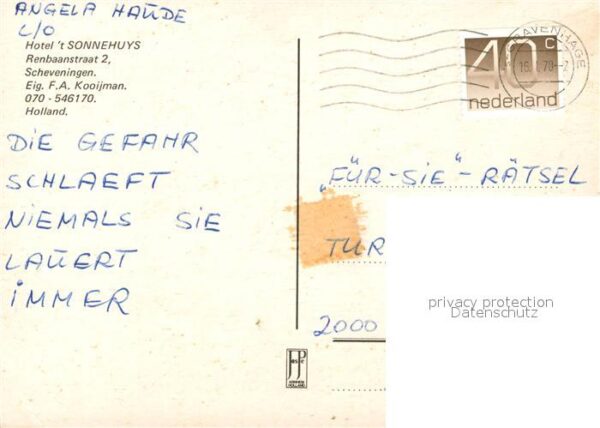 ANGELA HAUDE
C/O
Hotel 't SONNEHUYS
Renbaanstraat 2,
Scheveningen.
Eig. F.A. Kooijman.
070 - 546170.
Holland.
DIE GEFAHR
SCHLAEFT
NIEMALS SIE
LAUERT
IMMER
40 c
nederland
"FÜR-SIE"-RÄTSEL
TUR
2000
privacy protection
Datenschutz